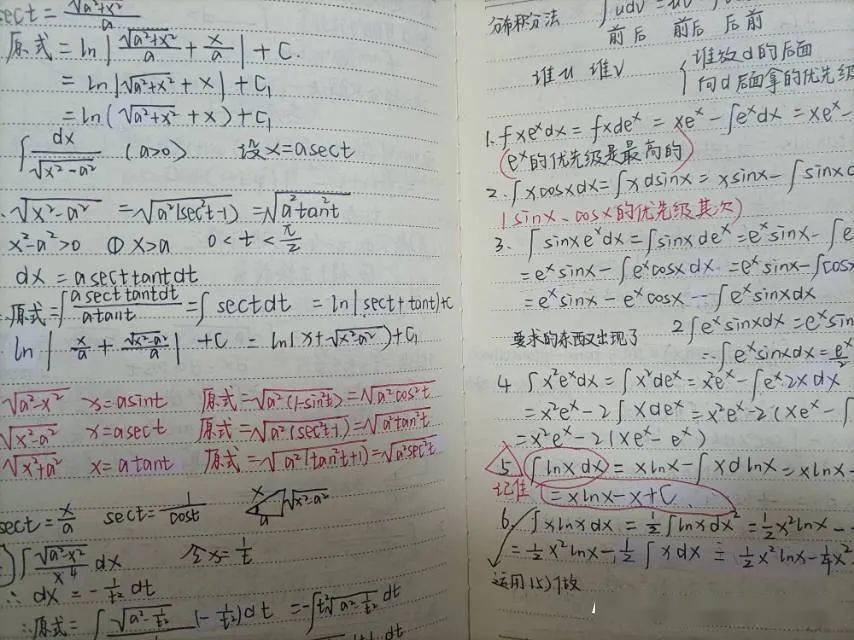 sect = √(a²+x²)/a
原式 = ln|√(a²+x²)/a + x/a| + C.
= ln|√(a²+x²) + x| + C₁
= ln(√(a²+x²) + x) + C₁
∫ dx/√(x²-a²) (a>0) 设x=asect
√(x²-a²) = √(a²(sec²t-1)) = √(a²tan²t)
x²-a²>0 ①x>a 0<t<π/2
dx = asect tantdt
原式=∫ asect tantdt/atant = ∫ sectdt = ln|sect+tant|+C
ln |x/a + √(x²-a²)/a| + C = ln|x+√(x²-a²)|+C₁
√(a²-x²) x=asint 原式=√(a²(1-sin²t))=√(a²cos²t)
√(x²-a²) x=asect 原式=√(a²(sec²t-1))=√(a²tan²t)
√(x²+a²) x=atant 原式=√(a²(tan²t+1))=√(a²sec²t)
sect=x/a sect=1/cost x a √(x²-a²)
∫ √(a²-x²)/x⁴ dx 令x=1/t
∴ dx = -1/t² dt
∴原式= ∫ √(a²-1/t²) (-1/t²)dt = -∫t²√(a²-1/t²) dt
分布积分法 ∫udv=uv
前后 前后 后前
谁u 谁v { 谁放d的后面
向d后面拿的优先级
1. ∫xeˣdx = ∫xdeˣ = xeˣ - ∫eˣdx = xeˣ -
(eˣ的优先级是最高的)
2. ∫xcosxdx = ∫xdsinx = xsinx - ∫sinxd
(sinx、cosx的优先级其次)
3. ∫sinxeˣdx = ∫sinxdeˣ = eˣsinx - ∫e
= eˣsinx - ∫eˣcosxdx = eˣsinx - ∫cosx
= eˣsinx - eˣcosx - ∫eˣsinxdx
要求的东西又出现了 2∫eˣsinxdx = eˣsin
∴∫eˣsinxdx = eˣ/2
4 ∫x²eˣdx = ∫x²deˣ = x²eˣ - ∫eˣ2xdx
= x²eˣ - 2∫xdeˣ = x²eˣ - 2(xeˣ - ∫
= x²eˣ - 2(xeˣ - eˣ)
5 ∫lnxdx = xlnx - ∫xdlnx = xlnx -
记住 = xlnx - x + C
6. ∫xlnxdx = ½∫lnxdx² = ½x²lnx -
= ½x²lnx - ½∫xdx = ½x²lnx - ¼x²
运用(5)了做